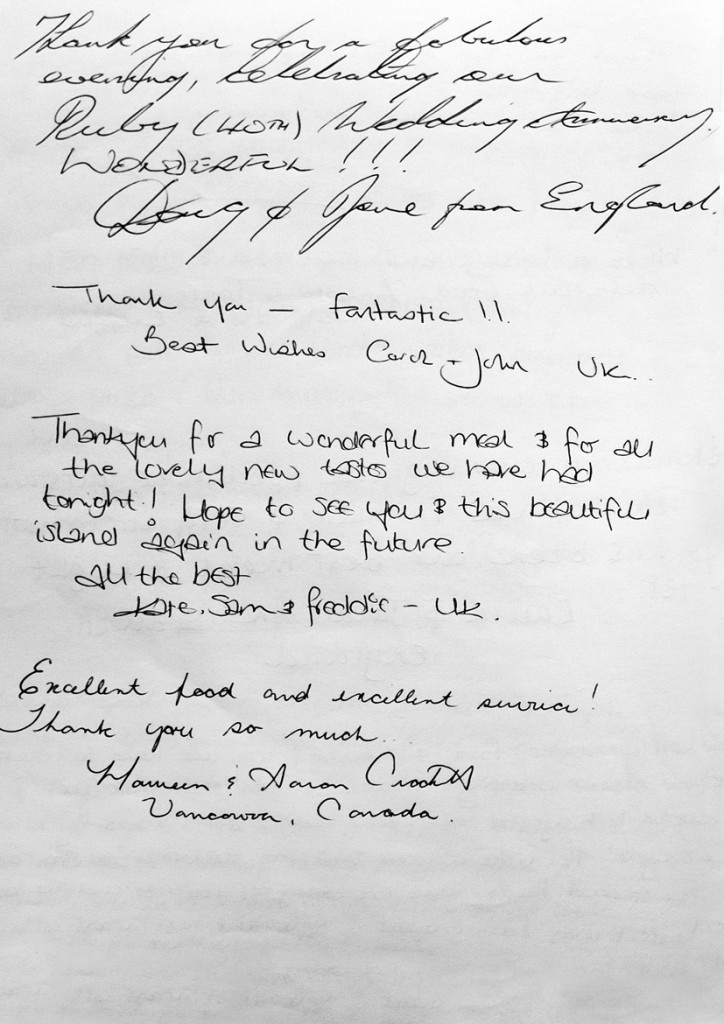 Thank you for a fabulous
evening, celebrating our
Ruby (40TH) Wedding Anniversary.
WONDERFUL !!!
Doug & Jane from England.
Thank you – fantastic !!.
Best Wishes Carol + John UK..
Thankyou for a wonderful meal & for all
the lovely new tastes we have had
tonight! Hope to see you & this beautiful
island again in the future.
all the best
Kate, Sam & freddie – UK.
Excellent food and excellent service!
Thank you so much...
& Aaron
Vancouver, Canada.